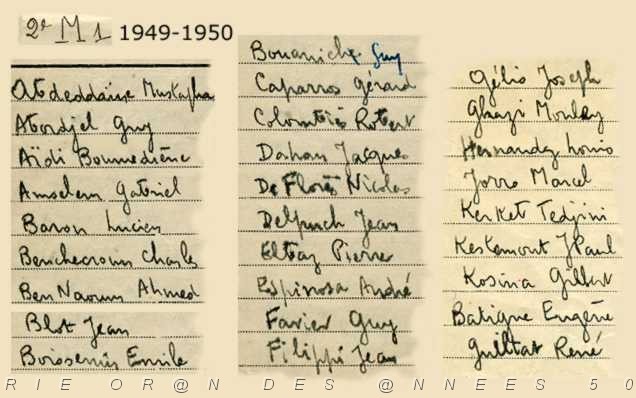 2e M1 1949-1950
Abdeddaine Mustapha
Abordjel Guy
Aïdi Boumediène
Amselem Gabriel
Baron Lucien
Benchecroun Charles
Ben Naoum Ahmed
Blot Jean
Boissenis Emile
Bonaniche Guy
Caparros Gérard
Colombiès Robert
Dahan Jacques
De Florès Nicolas
Delpuech Jean
Elbaz Pierre
Espinosa André
Favier Guy
Filippi Jean
Gélis Joseph
Ghazi Moulay
Hernandez Louis
Jorro Marcel
Kerket Tedjini
Keskemout J Paul
Kosina Gilbert
Batigne Eugène
Guiltat René
RIE OR@N DES @NNEES 50